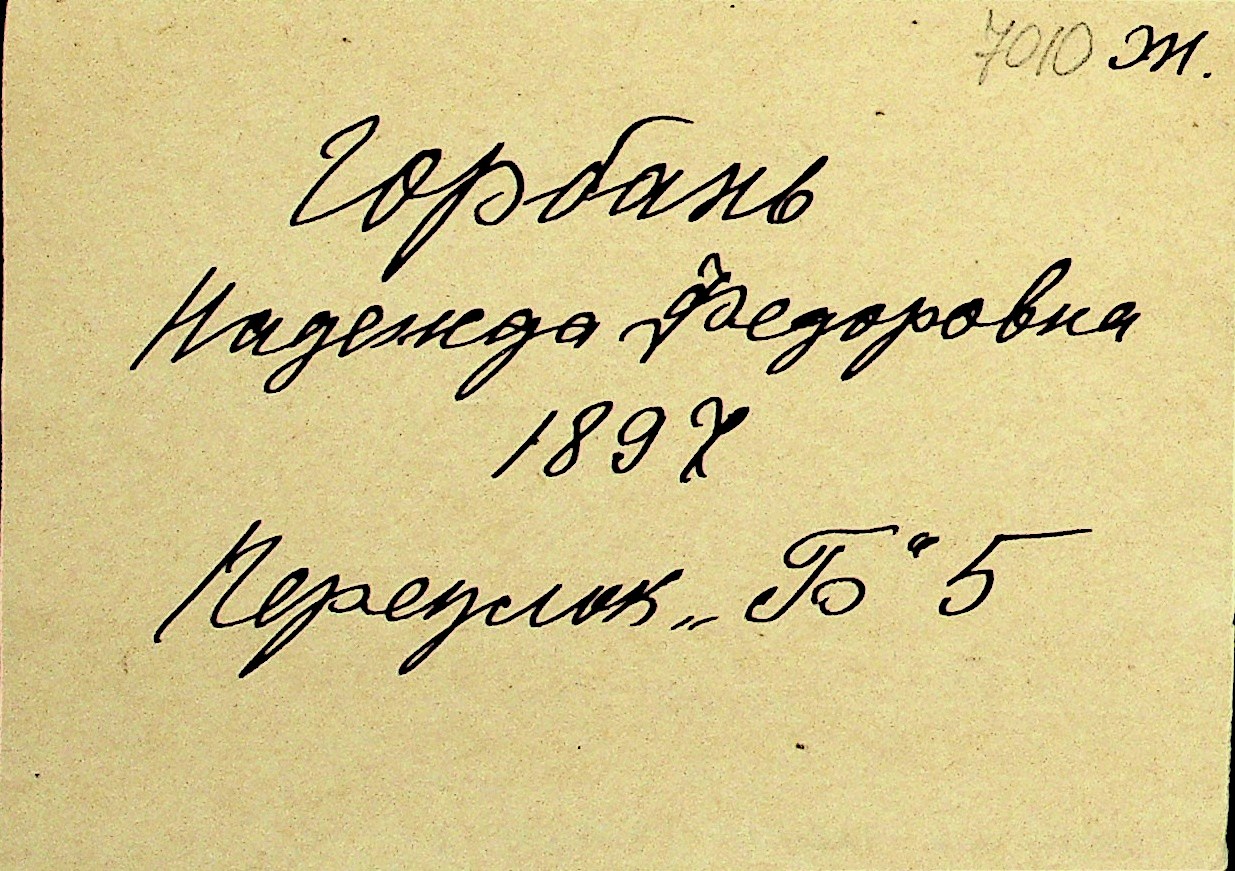 7010 ж.
Горбань
Надежда Федоровна
1897
Переулок „Б“ 5